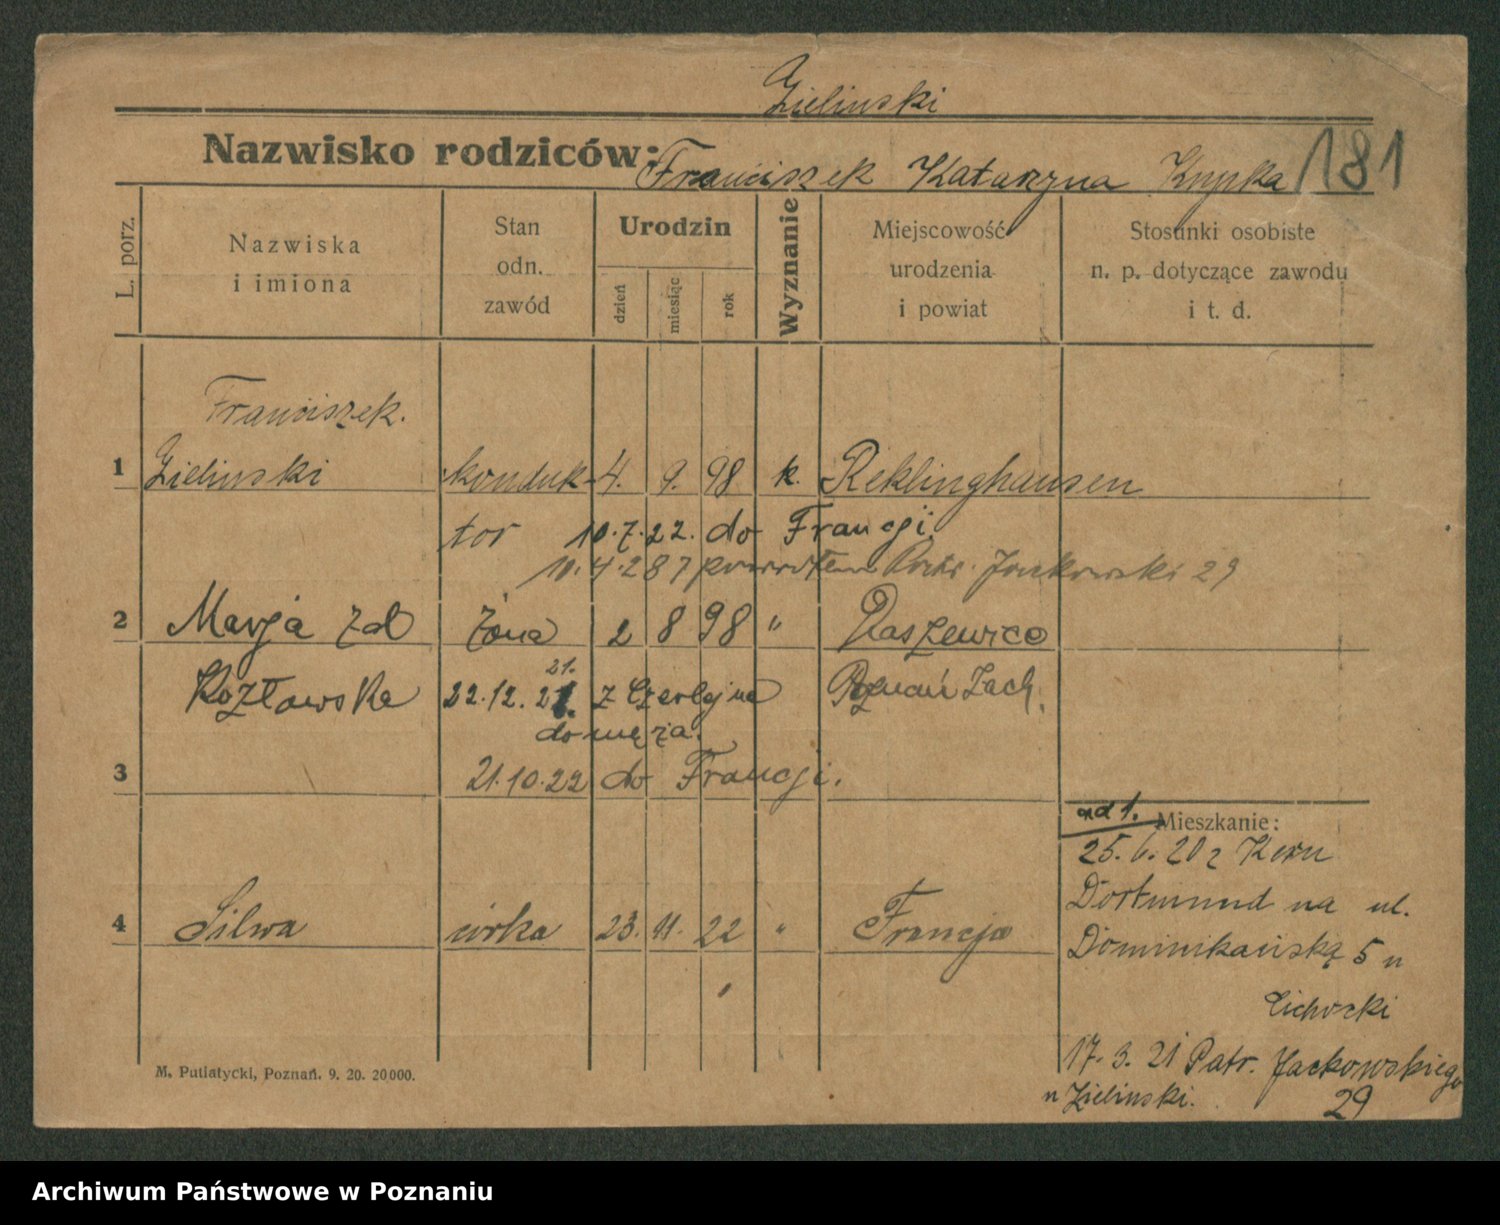 Zielinski
Nazwisko rodziców: Franciszek Katarzyna Krupka 181
L. porz.
Nazwiska
i imiona
Stan
odn.
zawód
Urodzin
dzień
miesiąc
rok
Wyznanie
Miejscowość
urodzenia
i powiat
Stosunki osobiste
n. p. dotyczące zawodu
i t. d.
Franciszek.
1 Zielinski konduk- 4. 9. 98 k. Reklinghausen
tor 10.7.22. do Francji.
10.4.28 powrotem Patr. Jackowski 29
2 Marja zd żona 2 8 98 " Plaszewice
21.
Kozłowska 22.12.21. z Czerlejna Poznań Zach.
do męża.
3 21.10.22 do Francji.
od 1. Mieszkanie:
25.6.20 z Kern
Dortmund na ul.
4 Silwa córka 23. 11. 22 " Francja
Dominikańską 5 u
Cichocki
17.3.21 Patr. Jackowskiego
u Zielinski. 29
M. Putiatycki, Poznań. 9. 20. 20000.
Archiwum Państwowe w Poznaniu